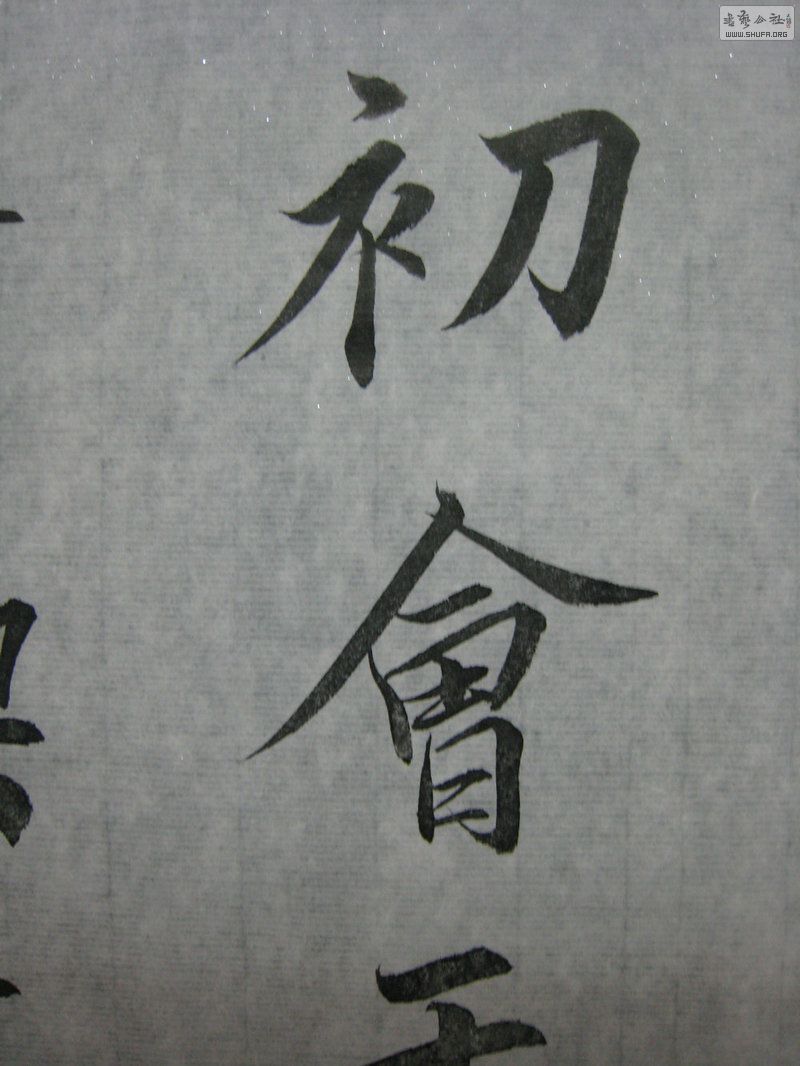 初會于
書藝公社
WWW.SHUFA.ORG